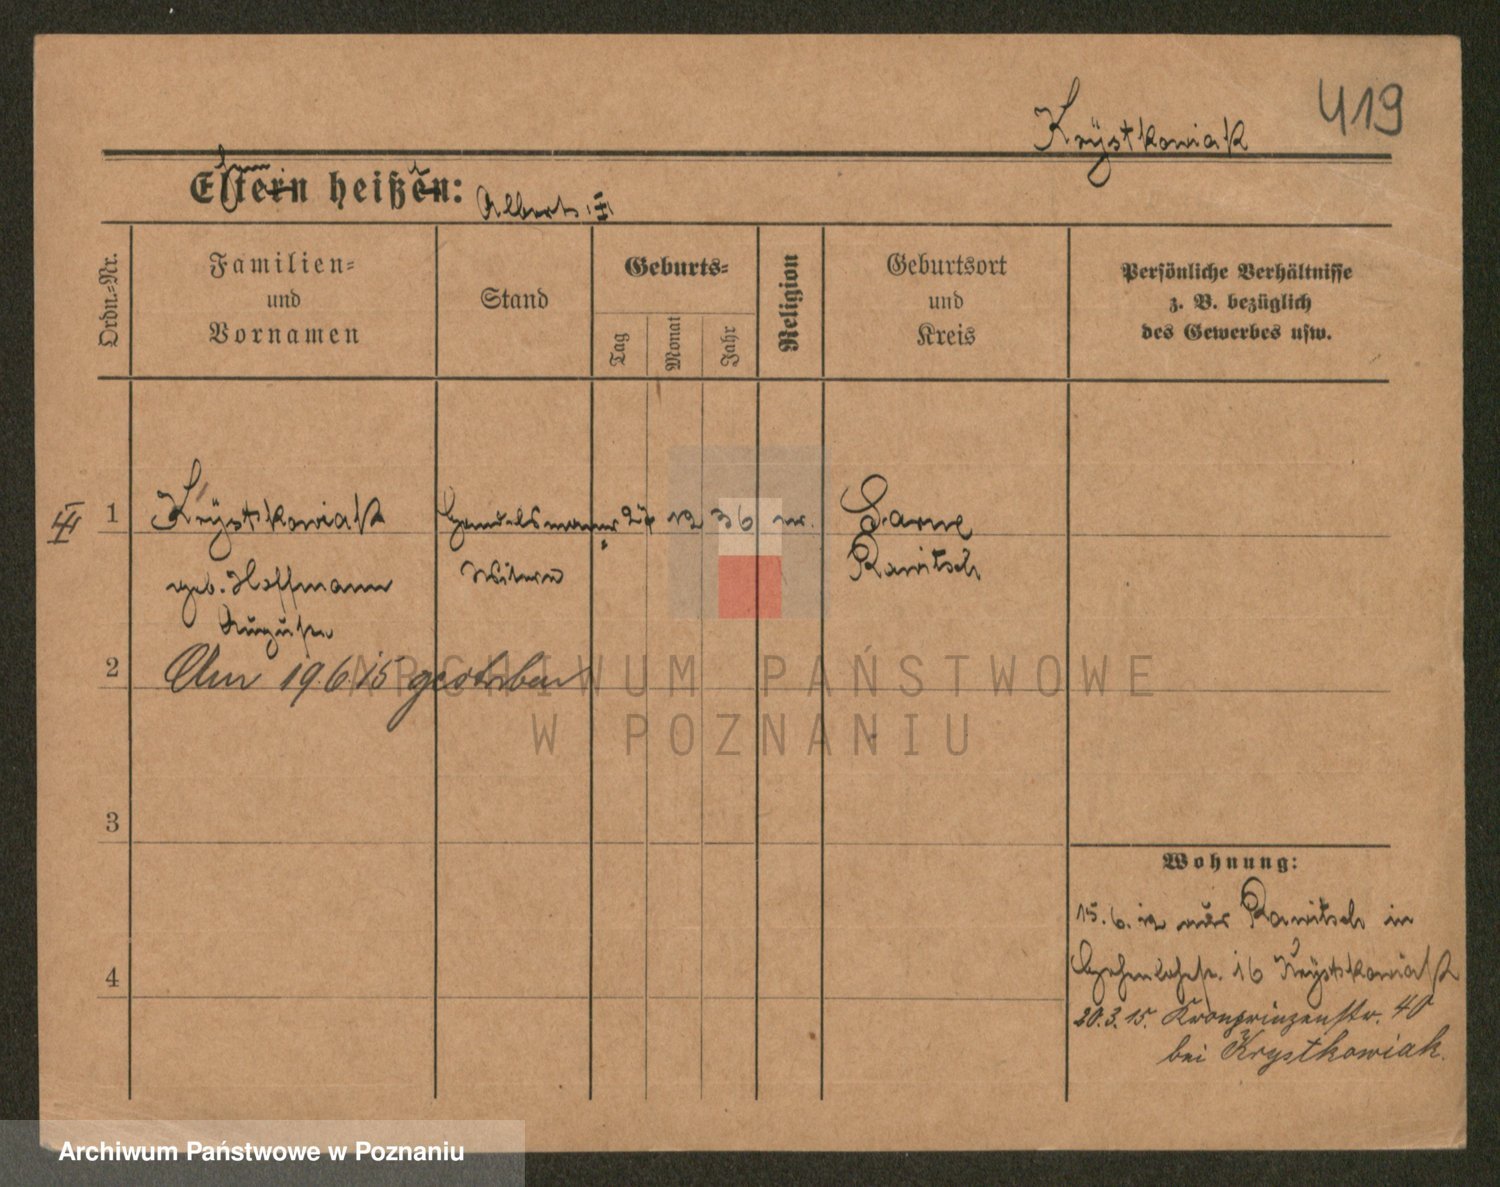 419
Krÿstkowiak
Eltern heißen:
Albert
Ordn.=Nr.
Familien=
und
Vornamen
Stand
Geburts=
Tag
Monat
Jahr
Religion
Geburtsort
und
Kreis
Persönliche Verhältnisse
z. B. bezüglich
des Gewerbes usw.
1 Krÿstkowiak Handelsmanns 27 12 36 ev. Sarne
geb. Hoffmann Witwe Rawitsch
Auguste
2 Am 19 6 15 gestorben
3
4
Wohnung:
15. 6. 12 aus Rawitsch in
16 Krÿstkowiak
20. 3. 15. Kronprinzenstr. 40
bei Krystkowiak.
ARCHIWUM PAŃSTWOWE
W POZNANIU
Archiwum Państwowe w Poznaniu